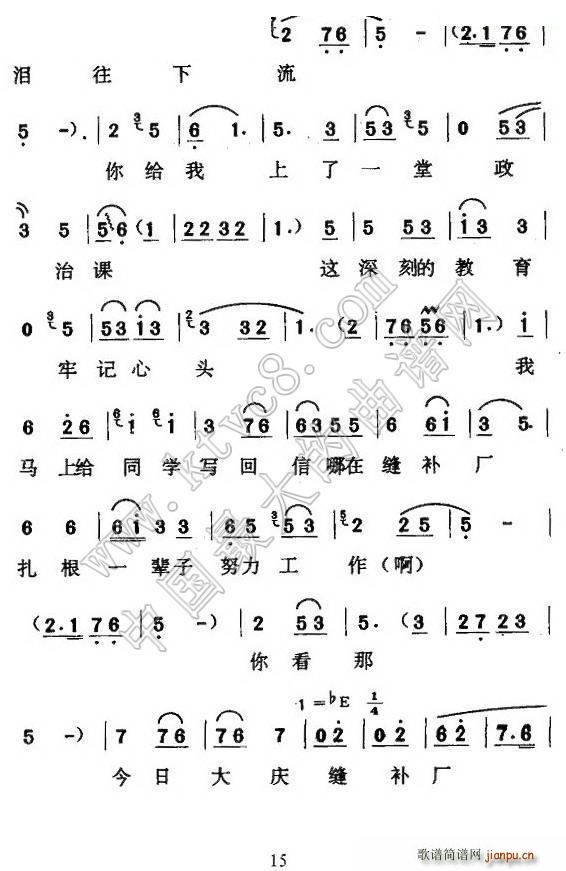 2 76 | 5 - | (2.1 76 |
泪 往 下 流
5 -). | 2 3 5 | 6 1. | 5. 3 | 53 3 5 | 0 53 |
你 给 我 上 了 一 堂 政
3 5 | 56 (1 | 22 32 | 1.) 5 | 5 53 | i3 3 |
治 课 这 深 刻 的 教 育
0 3 5 | 53 i3 | 2 3 32 | 1. (2 | 76 56 | 1.) i |
牢 记 心 头 我
6 26 | 6 i 6 i | 3 76 | 63 55 | 6 6i | 3 5. |
马 上 给 同 学 写 回 信 哪 在 缝 补 厂
6 6 | 6i 33 | 65 53 | 3 2 25 | 5 - |
扎 根 一 辈 子 努 力 工 作 (啊)
(2.1 76 | 5 -) | 2 53 | 5. (3 | 27 23 |
你 看 那
1=♭E 1/4
5 -) | 7 76 | 76 7 | 02 | 02 | 62 | 7.6 |
今 日 大 庆 缝 补 厂
15
歌谱简谱网
jianpu.cn
www.ktvc8.com
中国最大的曲谱网